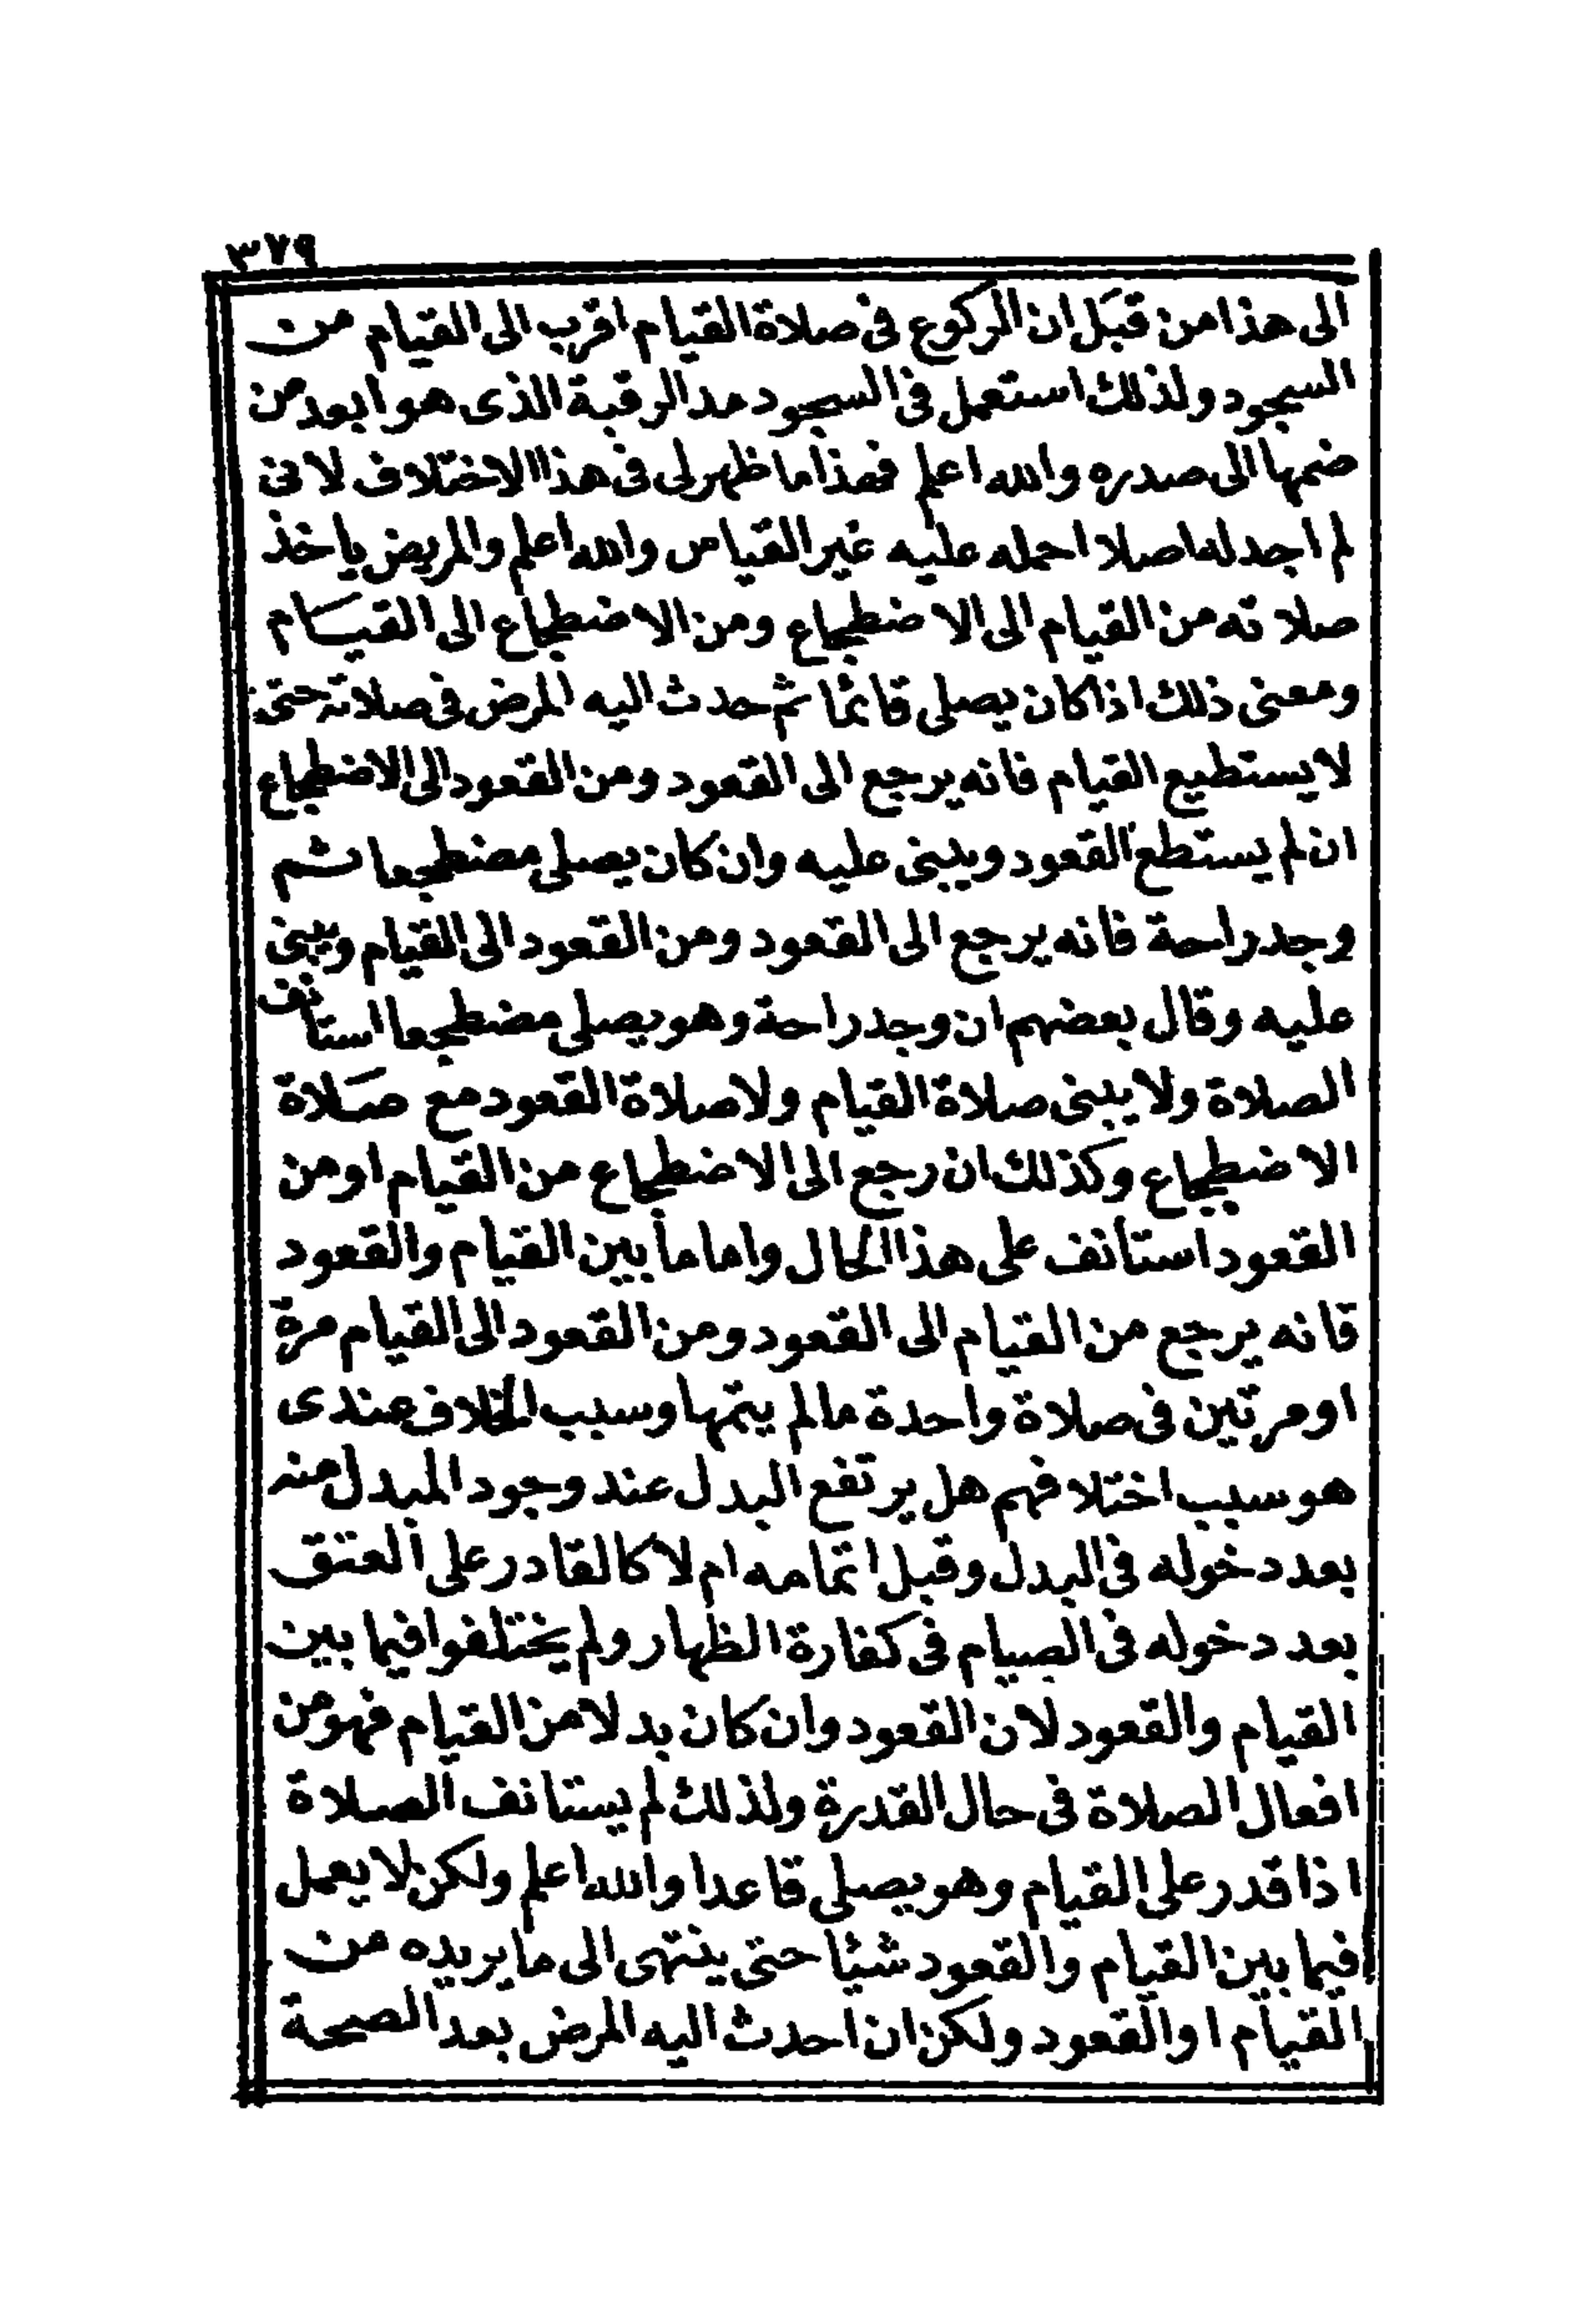 ٣٧٩
الى هذا من قبَل ان الركوع فى صلاة القيام اقرب الى القيام من
السجود ولذلك استعمل فى السجود مد الرقبة الذى هو ابعد من
ضمها الى صدره والله اعلم فهذا ما ظهر لى فى هذا الاختلاف لانى
لم اجد له اصلا احمله عليه غير القياس والله اعلم والمريض ياخذ
صلاته من القيام الى الاضطجاع ومن الاضطجاع الى القيام
ومعنى ذلك اذا كان يصلى قائما ثم حدث اليه المرض فى صلاته حتى
لا يستطيع القيام فانه يرجع الى القعود ومن القعود الى الاضطجاع
ان لم يستطع القعود ويبنى عليه وان كان يصلى مضطجعا ثم
وجد راحة فانه يرجع الى القعود ومن القعود الى القيام ويبنى
عليه وقال بعضهم ان وجد راحة وهو يصلى مضطجعا استانف
الصلاة ولا يبنى صلاة القيام ولا صلاة القعود مع صَلاة
الاضطجاع وكذلك ان رجع الى الاضطجاع من القيام او من
القعود استانف على هذا الحال واما ما بين القيام والقعود
فانه يرجع من القيام الى القعود ومن القعود الى القيام مرة
او مرتين فى صلاة واحدة ما لم يتمها وسبب الخلاف عندى
هو سبب اختلافهم هل يرتفع البدل عند وجود المبدل منه
بعد دخوله فى البدل وقبل اتمامه ام لا كالقادر على العتق
بعد دخوله فى الصيام فى كفارة الظهار ولم يختلفوا فيما بين
القيام والقعود لان القعود وان كان بدلا من القيام فهو من
افعال الصلاة فى حال القدرة ولذلك لم يستانف الصلاة
اذا قدر على القيام وهو يصلى قاعدا والله اعلم ولكن لا يعمل
فيما بين القيام والقعود شيئا حتى ينتهى الى ما يريده من
القيام او القعود ولكن ان احدث اليه المرض بعد الصحة